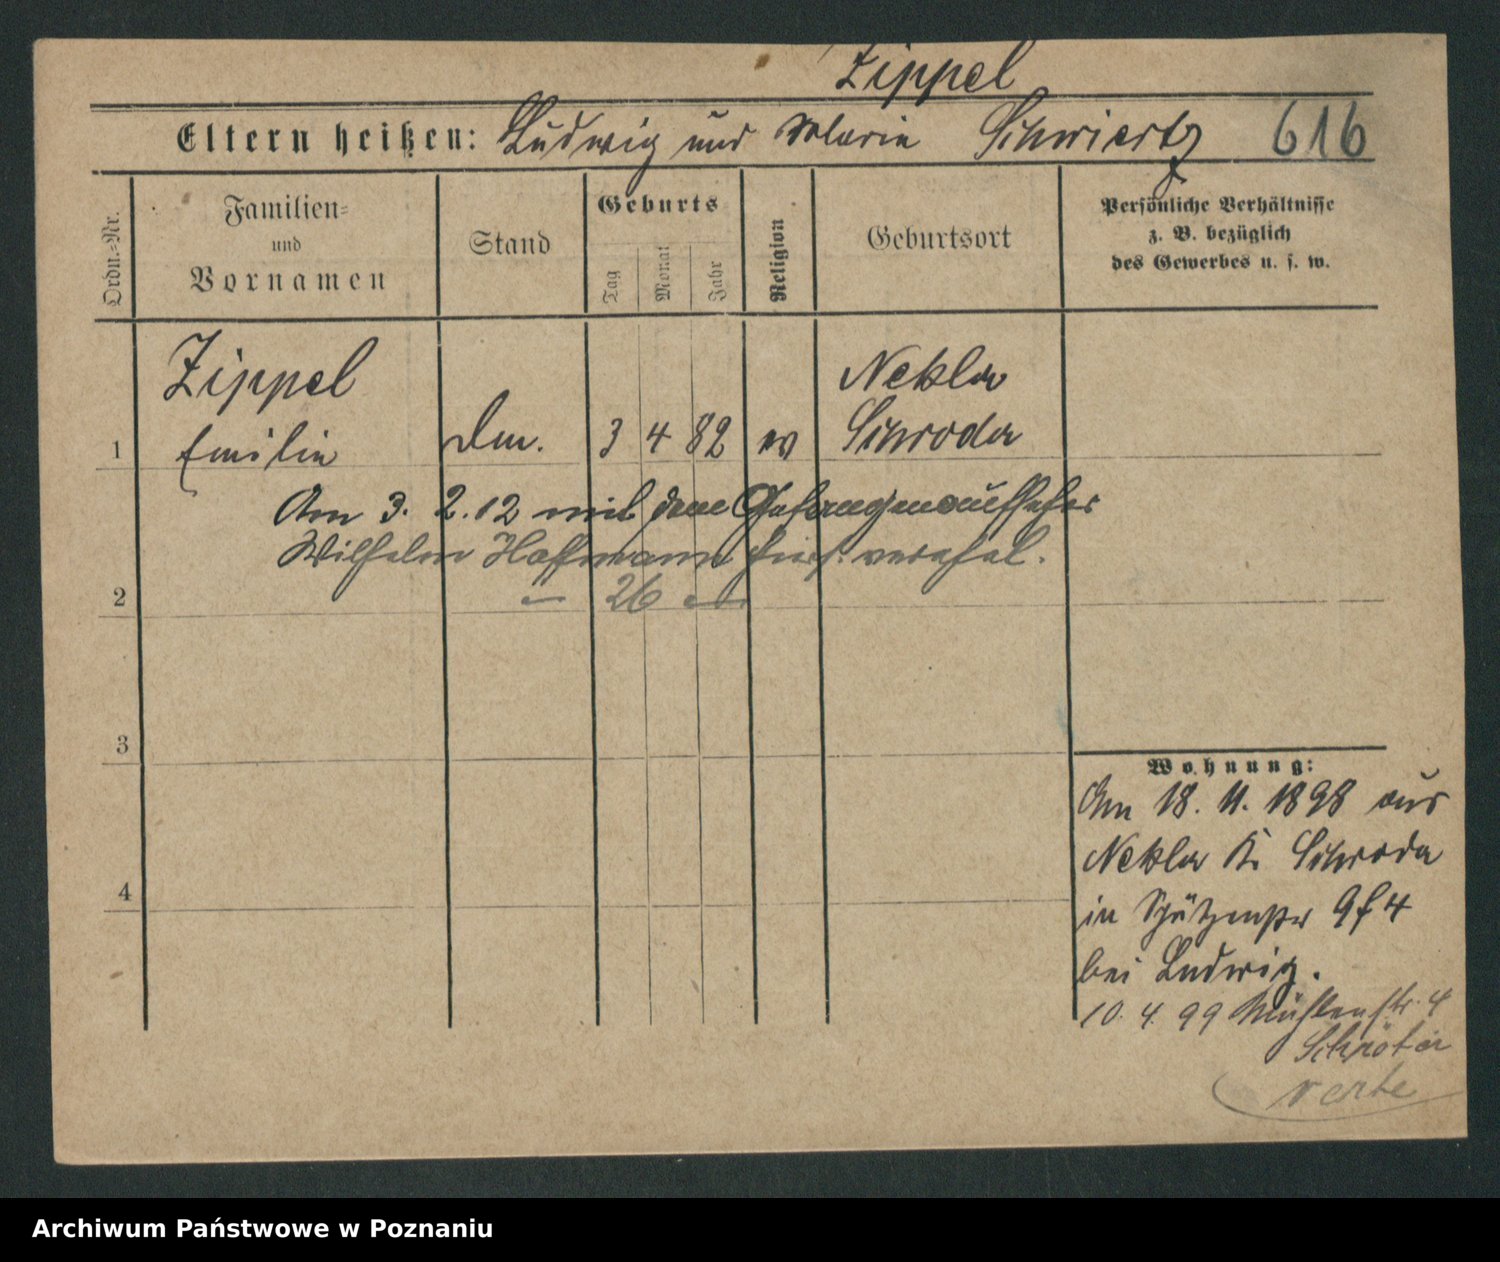 Zippel
Eltern heißen: Ludwig und Valeria Schwiertz 616
Ordn.-Nr.
Familien-
und
Vornamen
Stand
Geburts
Tag
Monat
Jahr
Religion
Geburtsort
Persönliche Verhältnisse
z. B. bezüglich
des Gewerbes u. s. w.
Zippel Nekla
1 Emilie 3 4 82 ev Schroda
Am 3. 2. 12 mit dem Gefangenaufseher
Wilhelm Hoffmann hies. verehel.
2 26
3
4
Wohnung:
Am 18. 11. 1898 aus
Nekla K. Schroda
in Schützenstr 9 f 4
bei Ludwig.
10. 4. 99 Mühlenstr. 4
Schröter
verte
Archiwum Państwowe w Poznaniu